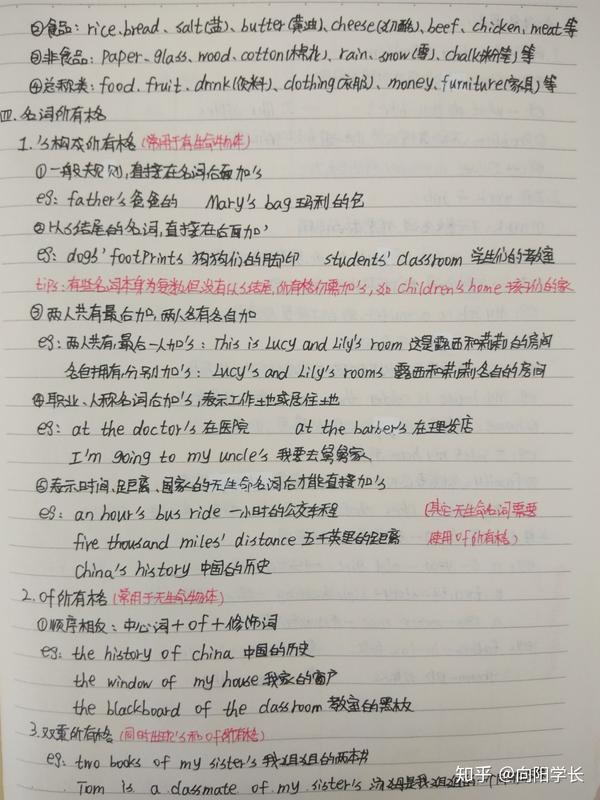 ②食品: rice、bread、salt(盐)、butter(黄油)、cheese(奶酪)、beef、chicken、meat等
③非食品: paper、glass、wood、cotton(棉花)、rain、snow(雪)、chalk(粉笔)等
④总称类: food、fruit、drink(饮料)、clothing(衣服)、money、furniture(家具)等
四.名词所有格
1.'s构成所有格(常用于有生命物体)
①一般规则,直接在名词后面加's
eg: father's 爸爸的 Mary's bag 玛利的包
②以s结尾的名词,直接在后面加'
eg: dogs' footprints 狗狗们的脚印 students' classroom 学生们的教室
tips:有些名词本身为复数但没有以s结尾,所有格仍需加's,如 children's home 孩子们的家
③两人共有最后加,两人各有各自加
eg:两人共有,最后一人加's: This is Lucy and Lily's room 这是露西和莉莉的房间
各自拥有,分别加's: Lucy's and Lily's rooms 露西和莉莉各自的房间
④职业、人称名词后加's,表示工作地或居住地
eg: at the doctor's 在医院 at the barber's 在理发店
I'm going to my uncle's 我要去舅舅家
⑤表示时间、距离、国家的无生命名词后才能直接加's
eg: an hour's bus ride 一小时的公交车程 (其它无生命名词需要
five thousand miles' distance 五千英里的距离 使用of所有格)
China's history 中国的历史
2. of所有格(常用于无生命物体)
①顺序相反: 中心词+of+修饰词
eg: the history of china 中国的历史
the window of my house 我家的窗户
the blackboard of the classroom 教室的黑板
3.双重所有格(同时出现's和of所有格)
eg: two books of my sister's 我姐姐的两本书
Tom is a classmate of my sister's 汤姆是我姐姐的一个
知乎 @向阳学长